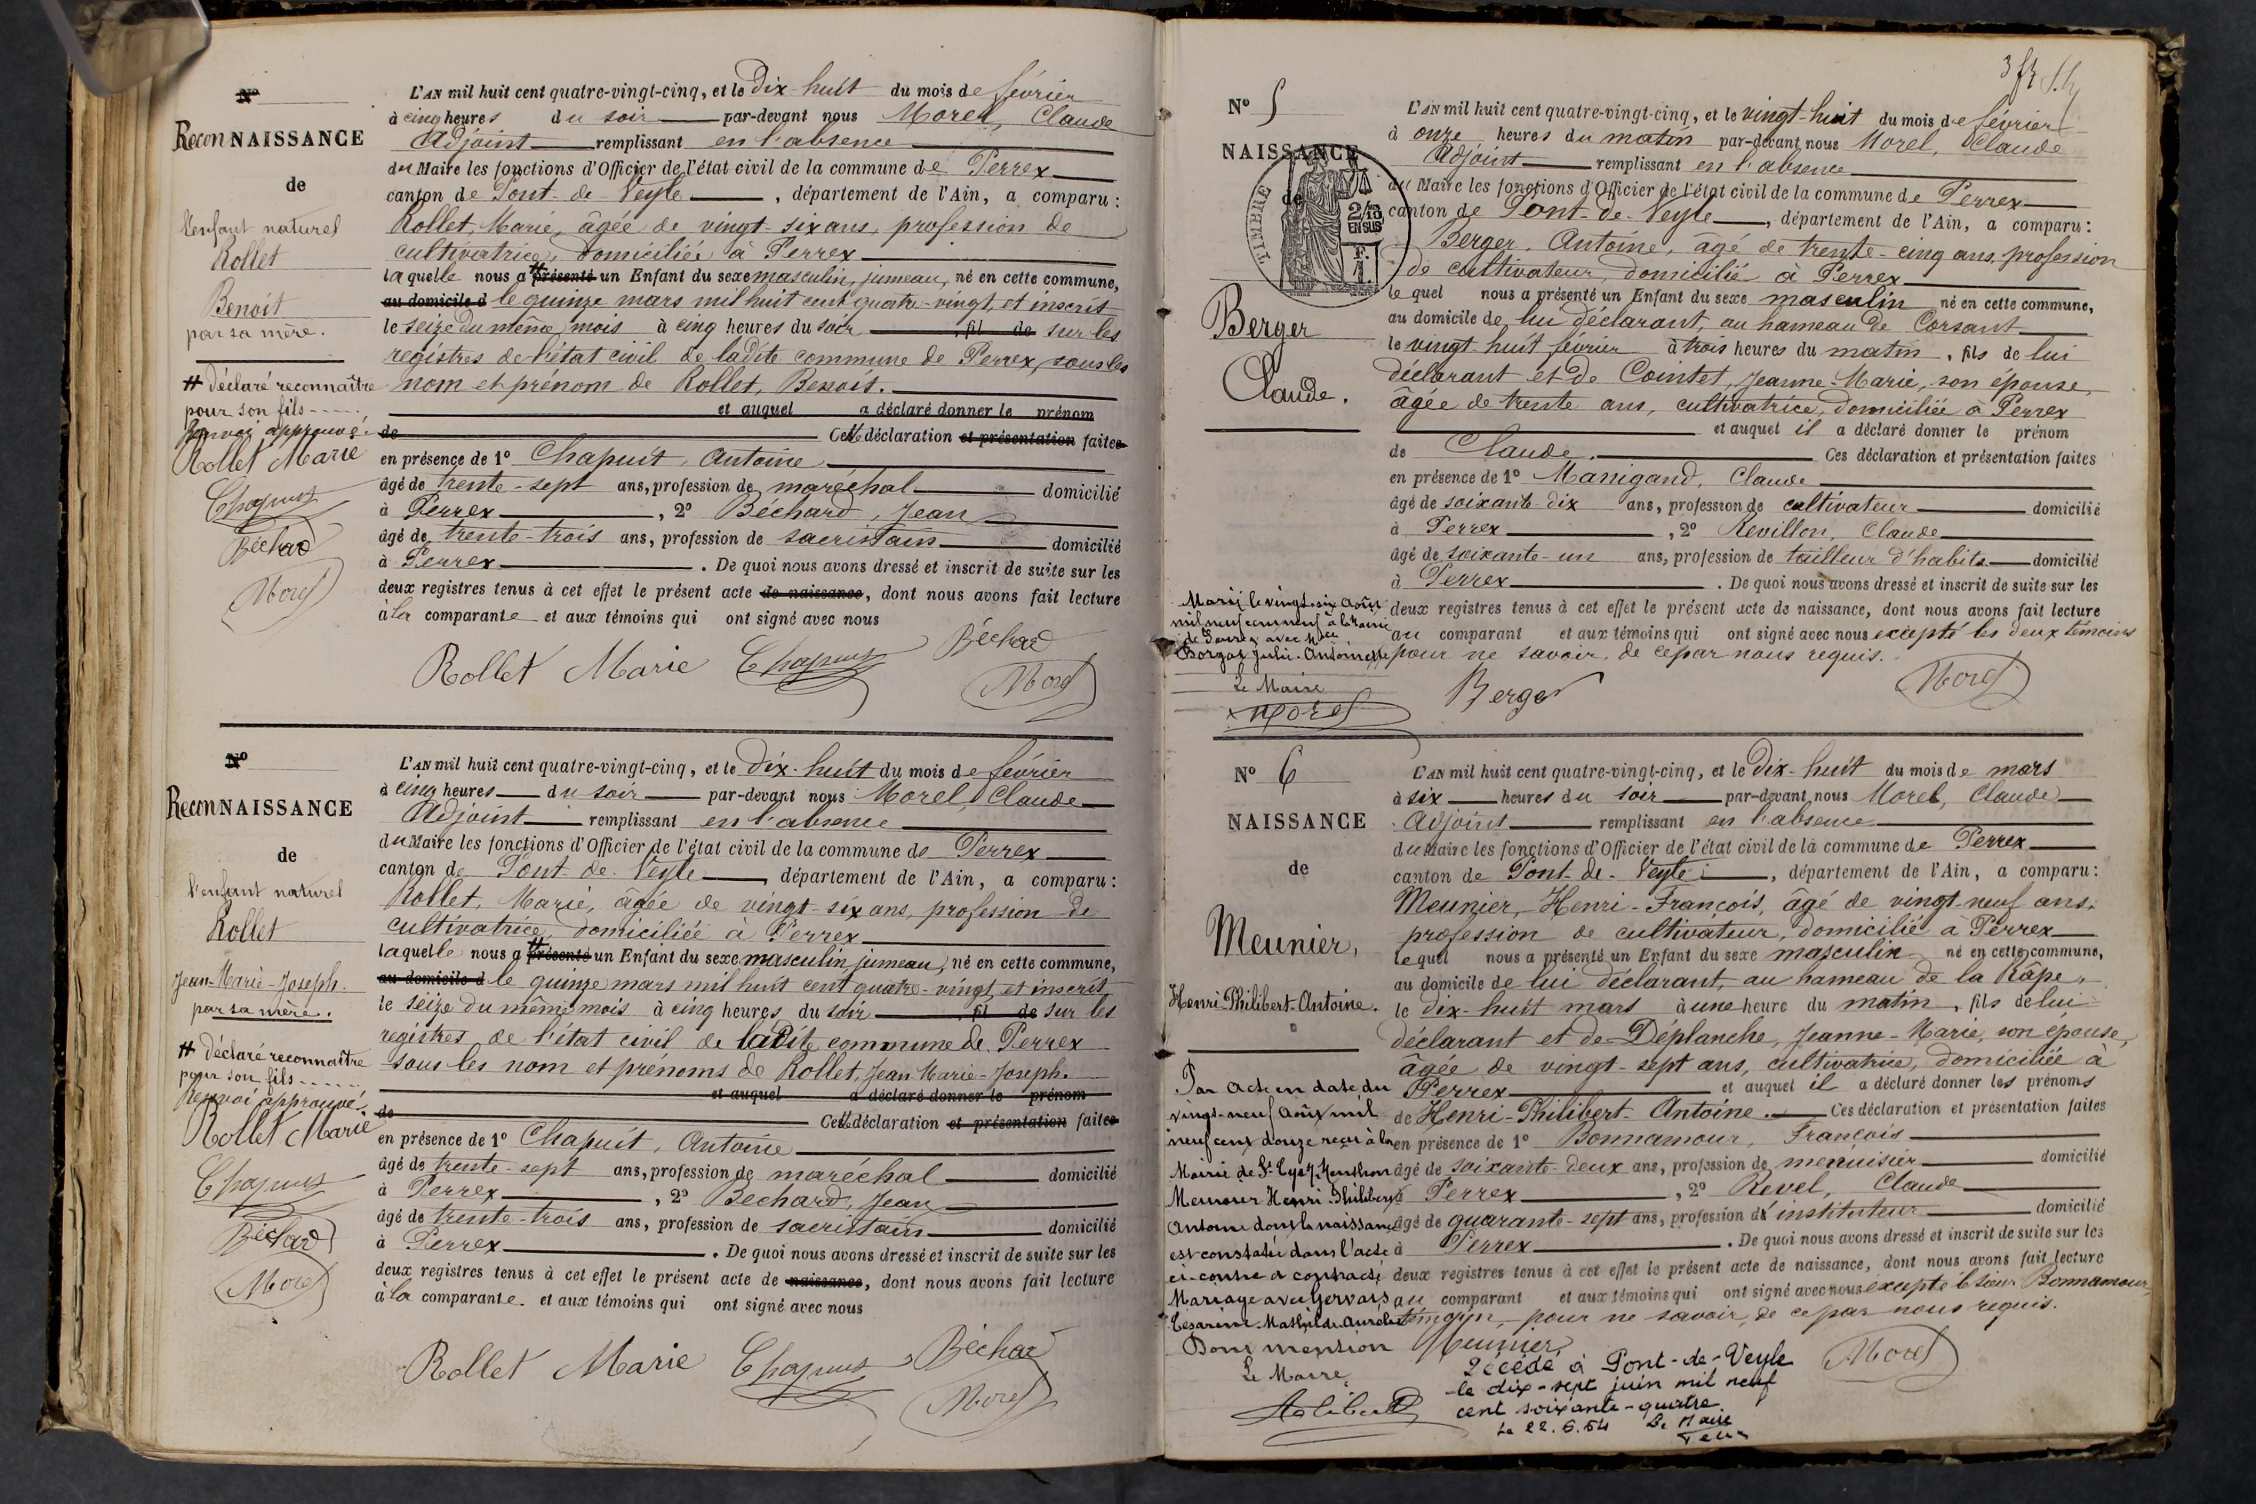 N°
ReconNAISSANCE
de
l'enfant naturel
Rollet
Benoît
par sa mère.
# déclaré reconnaître
pour son fils
Renvoi approuvé.
Rollet Marie
Chapuis
Béchard
Morel
L'AN mil huit cent quatre-vingt-cinq, et le Dix-huit du mois de février
à cinq heures du soir par-devant nous Morel, Claude
Adjoint remplissant en l'absence
du Maire les fonctions d'Officier de l'état civil de la commune de Perrex
canton de Pont-de-Veyle, département de l'Ain, a comparu :
Rollet, Marie, âgée de vingt-six ans, profession de
cultivatrice, domiciliée à Perrex
laquelle nous a # présenté un Enfant du sexe masculin, jumeau, né en cette commune,
au domicile d le quinze mars mil huit cent quatre-vingt, et inscrit
le seize du même mois à cinq heures du soir, fil de sur les
registres de l'état civil de ladite commune de Perrex, sous les
nom et prénom de Rollet, Benoît.
et auquel a déclaré donner le prénom
de Cette déclaration et présentation faites
en présence de 1° Chapuit, Antoine
âgé de trente-sept ans, profession de maréchal domicilié
à Perrex, 2° Béchard, Jean
âgé de trente-trois ans, profession de sacristain domicilié
à Perrex. De quoi nous avons dressé et inscrit de suite sur les
deux registres tenus à cet effet le présent acte de naissance, dont nous avons fait lecture
à la comparante et aux témoins qui ont signé avec nous
Rollet Marie Chapuis Béchard
Morel
N°
ReconNAISSANCE
de
l'enfant naturel
Rollet
Jean-Marie-Joseph.
par sa mère.
# déclaré reconnaître
pour son fils
Renvoi approuvé.
Rollet Marie
Chapuis
Béchard
Morel
L'AN mil huit cent quatre-vingt-cinq, et le dix-huit du mois de février
à cinq heures du soir par-devant nous Morel, Claude
Adjoint remplissant en l'absence
du Maire les fonctions d'Officier de l'état civil de la commune de Perrex
canton de Pont-de-Veyle, département de l'Ain, a comparu :
Rollet, Marie, âgée de vingt-six ans, profession de
cultivatrice, domiciliée à Perrex
laquelle nous a # présenté un Enfant du sexe masculin jumeau, né en cette commune,
au domicile d le quinze mars mil huit cent quatre-vingt, et inscrit
le seize du même mois à cinq heures du soir, fil de sur les
registres de l'état civil de ladite commune de Perrex
sous les nom et prénoms de Rollet, Jean-Marie-Joseph.
et auquel a déclaré donner le prénom
de Cette déclaration et présentation faites
en présence de 1° Chapuit, Antoine
âgé de trente-sept ans, profession de maréchal domicilié
à Perrex, 2° Béchard, Jean
âgé de trente-trois ans, profession de sacristain domicilié
à Perrex. De quoi nous avons dressé et inscrit de suite sur les
deux registres tenus à cet effet le présent acte de naissance, dont nous avons fait lecture
à la comparante et aux témoins qui ont signé avec nous
Rollet Marie Chapuis Béchard
Morel
3 f
N° 5
NAISSANCE
de
TIMBRE
2/10 EN SUS
F. 1.
Berger
Claude.
L'AN mil huit cent quatre-vingt-cinq, et le vingt-huit du mois de février
à onze heures du matin par-devant nous Morel, Claude
Adjoint remplissant en l'absence
du Maire les fonctions d'Officier de l'état civil de la commune de Perrex
canton de Pont-de-Veyle, département de l'Ain, a comparu :
Berger, Antoine, âgé de trente-cinq ans, profession
de cultivateur, domicilié à Perrex
lequel nous a présenté un Enfant du sexe masculin né en cette commune,
au domicile de lui déclarant, au hameau de Corsant
le vingt-huit février à trois heures du matin, fils de lui
déclarant et de Comtet, Jeanne-Marie, son épouse,
âgée de trente ans, cultivatrice, domiciliée à Perrex
et auquel il a déclaré donner le prénom
de Claude. Ces déclaration et présentation faites
en présence de 1° Manigand, Claude
âgé de soixante-dix ans, profession de cultivateur domicilié
à Perrex, 2° Revillon, Claude
âgé de soixante-un ans, profession de tailleur d'habits domicilié
à Perrex. De quoi nous avons dressé et inscrit de suite sur les
deux registres tenus à cet effet le présent acte de naissance, dont nous avons fait lecture
au comparant et aux témoins qui ont signé avec nous excepté les deux témoins
pour ne savoir, de ce par nous requis.
Berger Morel
Marié le vingt-six Août
mil neuf cent neuf à la Mairie
de Perrex avec Melle
Julie-Antoinette
Le Maire
Morel
N° 6
NAISSANCE
de
Meunier,
Henri-Philibert-Antoine.
L'AN mil huit cent quatre-vingt-cinq, et le Dix-huit du mois de mars
à six heures du soir par-devant nous Morel, Claude
Adjoint remplissant en l'absence
du Maire les fonctions d'Officier de l'état civil de la commune de Perrex
canton de Pont-de-Veyle, département de l'Ain, a comparu :
Meunier, Henri-François, âgé de vingt-neuf ans,
profession de cultivateur, domicilié à Perrex
lequel nous a présenté un Enfant du sexe masculin né en cette commune,
au domicile de lui déclarant, au hameau de la Râpe,
le dix-huit mars à une heure du matin, fils de lui
déclarant et de Déplanche, Jeanne-Marie, son épouse,
âgée de vingt-sept ans, cultivatrice, domiciliée à
Perrex et auquel il a déclaré donner les prénoms
de Henri-Philibert-Antoine. Ces déclaration et présentation faites
en présence de 1° Bonnamour, François
âgé de soixante-deux ans, profession de menuisier domicilié
à Perrex, 2° Revel, Claude
âgé de quarante-sept ans, profession d'instituteur domicilié
à Perrex. De quoi nous avons dressé et inscrit de suite sur les
deux registres tenus à cet effet le présent acte de naissance, dont nous avons fait lecture
au comparant et aux témoins qui ont signé avec nous excepté le sieur Bonnamour,
témoin, pour ne savoir, de ce par nous requis.
Meunier Morel
Par acte en date du
vingt-neuf Août mil
neuf cent douze reçu à la
Mairie de St Cyr s/ Menthon
Meunier Henri Philibert
Antoine dont la naissance
est constatée dans l'acte
ci-contre a contracté
Mariage avec Gervais
Césarine-Mathilde-Aurelie
Dont mention
Le Maire,
Décédé à Pont-de-Veyle
le dix-sept juin mil neuf
cent soixante-quatre.
Le 22.6.64 Le Maire